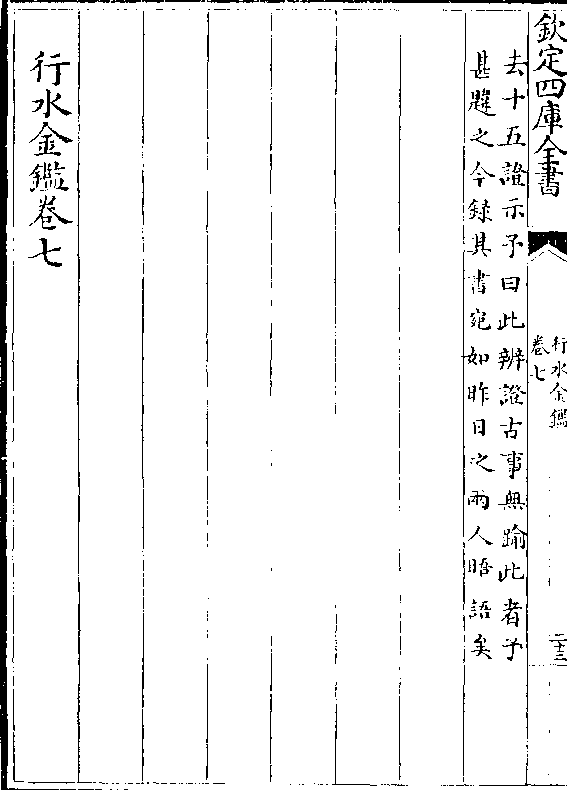 欽定四庫全書
行水金鑑
卷七
二十三
去十五證示予曰此辨證古事無踰此者予
甚韙之今録其書宛如昨日之兩人晤語矣
行水金鑑卷七